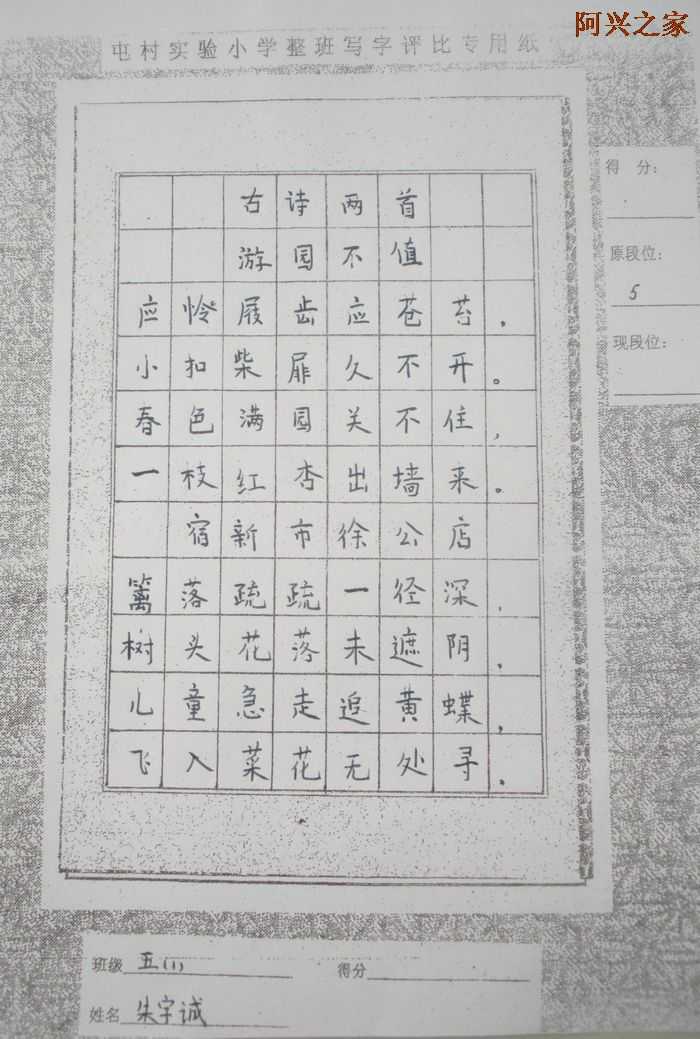 阿兴之家
屯村实验小学整班写字评比专用纸
得 分：
原段位：
5
现段位：
古诗两首
游园不值
应怜屐齿应苍苔，
小扣柴扉久不开。
春色满园关不住，
一枝红杏出墙来。
宿新市徐公店
篱落疏疏一径深，
树头花落未遮阴，
儿童急走追黄蝶，
飞入菜花无处寻。
班级 五(1) 得分
姓名 朱宇诚